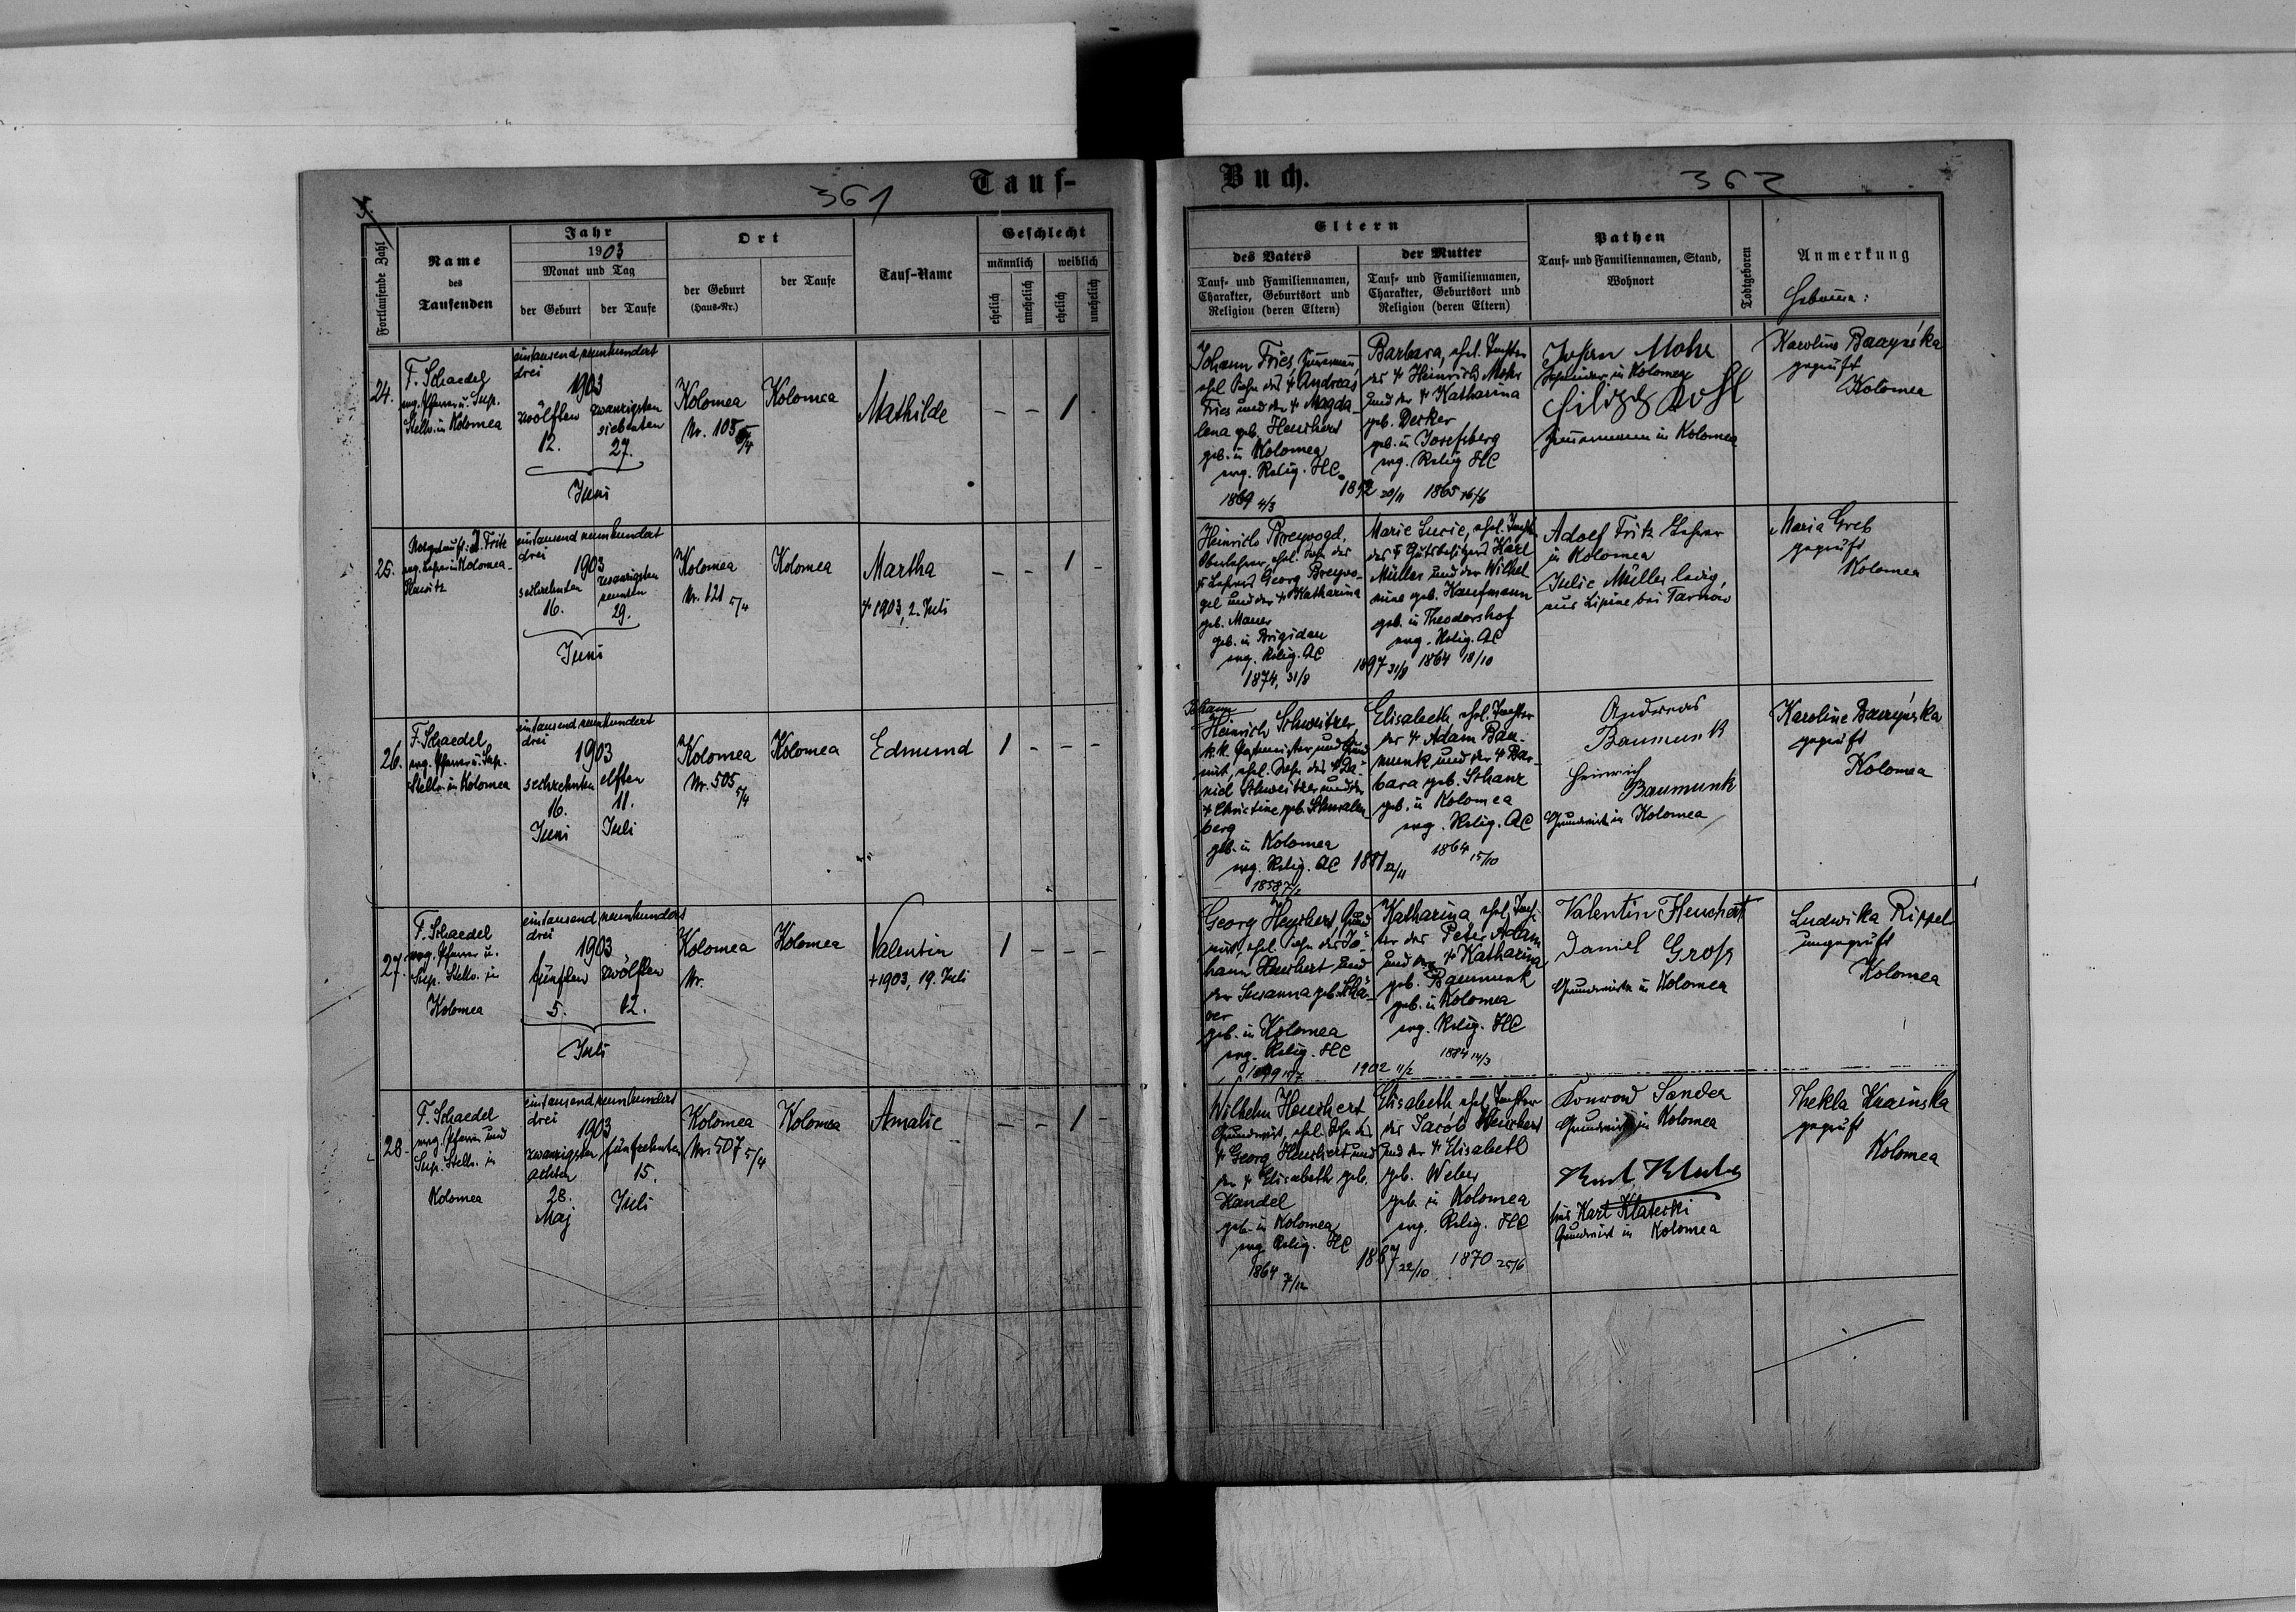 361
Tauf-
Fortlaufende Zahl
Name
des
Taufenden
Jahr
1903
Monat und Tag
der Geburt
der Taufe
Ort
der Geburt
(Haus-Nr.)
der Taufe
Tauf-Name
Geschlecht
männlich
weiblich
ehelich
unehelich
ehelich
unehelich
24.
F. Schaedel
evg. Pfarrer u. Sup.
Stellv. in Kolomea
eintausend neunhundert
drei
1903
zwölften
12.
zwanzigsten
siebenten
27.
Juni
Kolomea
Nr. 105
Kolomea
Mathilde
- - 1 -
25.
A. Fritz
eintausend neunhundert
drei
1903
sechzehnten
16.
zwanzigsten
neunten
29.
Juni
Kolomea
Nr. 121 5/4
Kolomea
Martha
+ 1903, 2. Juli
- - 1 -
26.
F. Schaedel
evg. Pfarrer u. Sup.
Stellv. in Kolomea
eintausend neunhundert
drei
1903
sechzehnten
16.
Juni
elften
11.
Juli
Kolomea
Nr. 505 5/4
Kolomea
Edmund
1 - - -
27.
F. Schaedel
evg. Pfarrer u.
Sup. Stellv. in
Kolomea
eintausend neunhundert
drei
1903
fünften
5.
zwölften
12.
Juli
Kolomea
Nr.
Kolomea
Valentin
+ 1903, 19. Juli
1 - - -
28.
F. Schaedel
evg. Pfarrer und
Sup. Stellv. in
Kolomea
eintausend neunhundert
drei
1903
zwanzigsten
achten
28.
Maj
fünfzehnten
15.
Juli
Kolomea
Nr. 507 5/4
Kolomea
Amalie
- - 1 -
Buch.
362
Eltern
des Vaters
Tauf- und Familiennamen,
Charakter, Geburtsort und
Religion (deren Eltern)
der Mutter
Tauf- und Familiennamen,
Charakter, Geburtsort und
Religion (deren Eltern)
Pathen
Tauf- und Familiennamen, Stand,
Wohnort
Todtgeboren
Anmerkung
Johann Fries, Zimmermann,
ehel. Sohn des + Andreas
Fries und der + Magda-
lena geb. Heuchert
geb. in Kolomea
evg. Relig. HC.
1869 4/3
Barbara, ehel. Tochter
des + Heinrich Mohr
und der + Katharina
geb. Decker
geb. in Josefsberg
evg. Relig HC
20/11 1865 16/6
Johan Mohr
in Kolomea
Zimmermann in Kolomea
geprüft
Kolomea
Heinrich Breyvogel,
Oberlehrer, ehel. Sohn des
+ Lehrers Georg Breyvo-
gel und der + Katharina
geb. Mauer
geb. in Brigidau
evg. Relig. AC
1874, 31/8
Marie Lucie, ehel. Tochter
des + Gutsbesitzers Karl
Müller und der Wilhel-
mine geb. Kaufmann
geb. in Theodorshof
evg. Relig. AC
1897 31/8 1864 18/10
Adolf Fritz Lehrer
in Kolomea
Julie Müller ledig,
aus Lipine bei Tarnow
Maria Greb
geprüft
Kolomea
Johann
Heinrich Schweitzer
k.k. Postmeister und Grund-
wirt, ehel. Sohn des + Da-
niel Schweitzer und der
+ Christine geb.
berg
geb. in Kolomea
evg. Relig. AC
Elisabeth ehel. Tochter
des + Adam Bau-
munk und der + Bar-
bara geb. Schanz
geb. in Kolomea
evg. Relig. AC
1881 22/11 1864 15/10
Andreas
Baumunk
Heinrich
Baumunk
Grundwirte in Kolomea
Karoline
geprüft
Kolomea
Georg Heuchert, Grund-
wirt, ehel. Sohn des Jo-
hann Heuchert und
der Susanna geb. Schä-
fer
geb. in Kolomea
evg. Relig. HC
Katharina ehel. Toch-
ter des Peter Adam
und der + Katharina
geb. Baumunk
geb. in Kolomea
evg. Relig. HC
1902 11/2 1884 14/3
Valentin Heuchert
Daniel Groß
Grundwirte in Kolomea
Ludwika Rippel
ungeprüft
Kolomea
Wilhelm Heuchert
Grundwirt, ehel. Sohn des
+ Georg Heuchert und
der + Elisabeth geb.
Handel
geb. in Kolomea
evg. Relig. HC
1864 7/12
Elisabeth ehel. Tochter
des Jacob Heuchert
und der + Elisabeth
geb. Weber
geb. in Kolomea
evg. Relig. HC
1887 22/10 1870 25/6
Konrad Sander
Grundwirt in Kolomea
Karl
Grundwirt in Kolomea
Thekla Krainska
geprüft
Kolomea